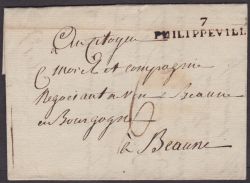 7
PHILIPPEVILL
Au Citoyen
Morel et compagnie
Negotiant a de Beaune
en Bourgogne
6
à Beaune